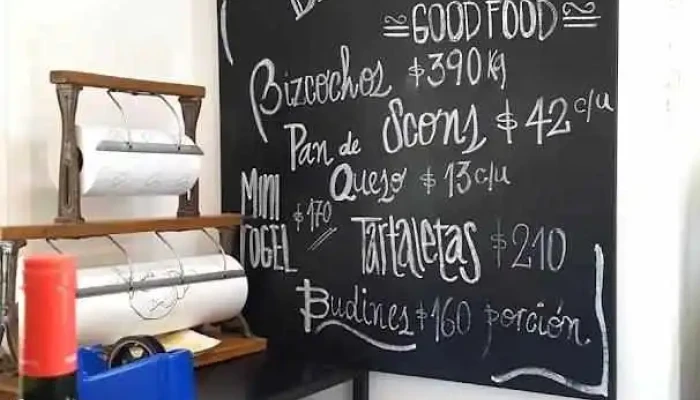 GOOD FOOD
Bizcochos $390 Kg
Scons $42 c/u
Pan de Queso $13 c/u
MINI ROGEL $170
Tartaletas $210
Budines $160 porción